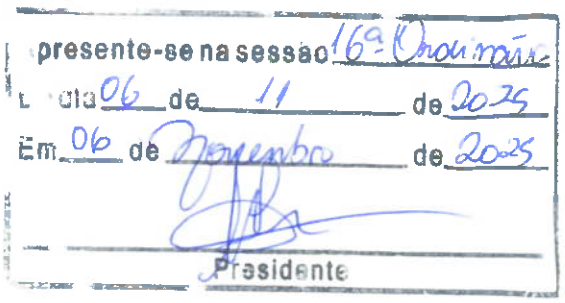 presente-se na sessão 16ª Ordinária
dia 06 de 11 de 2025
Em 06 de Novembro de 2025
Presidente